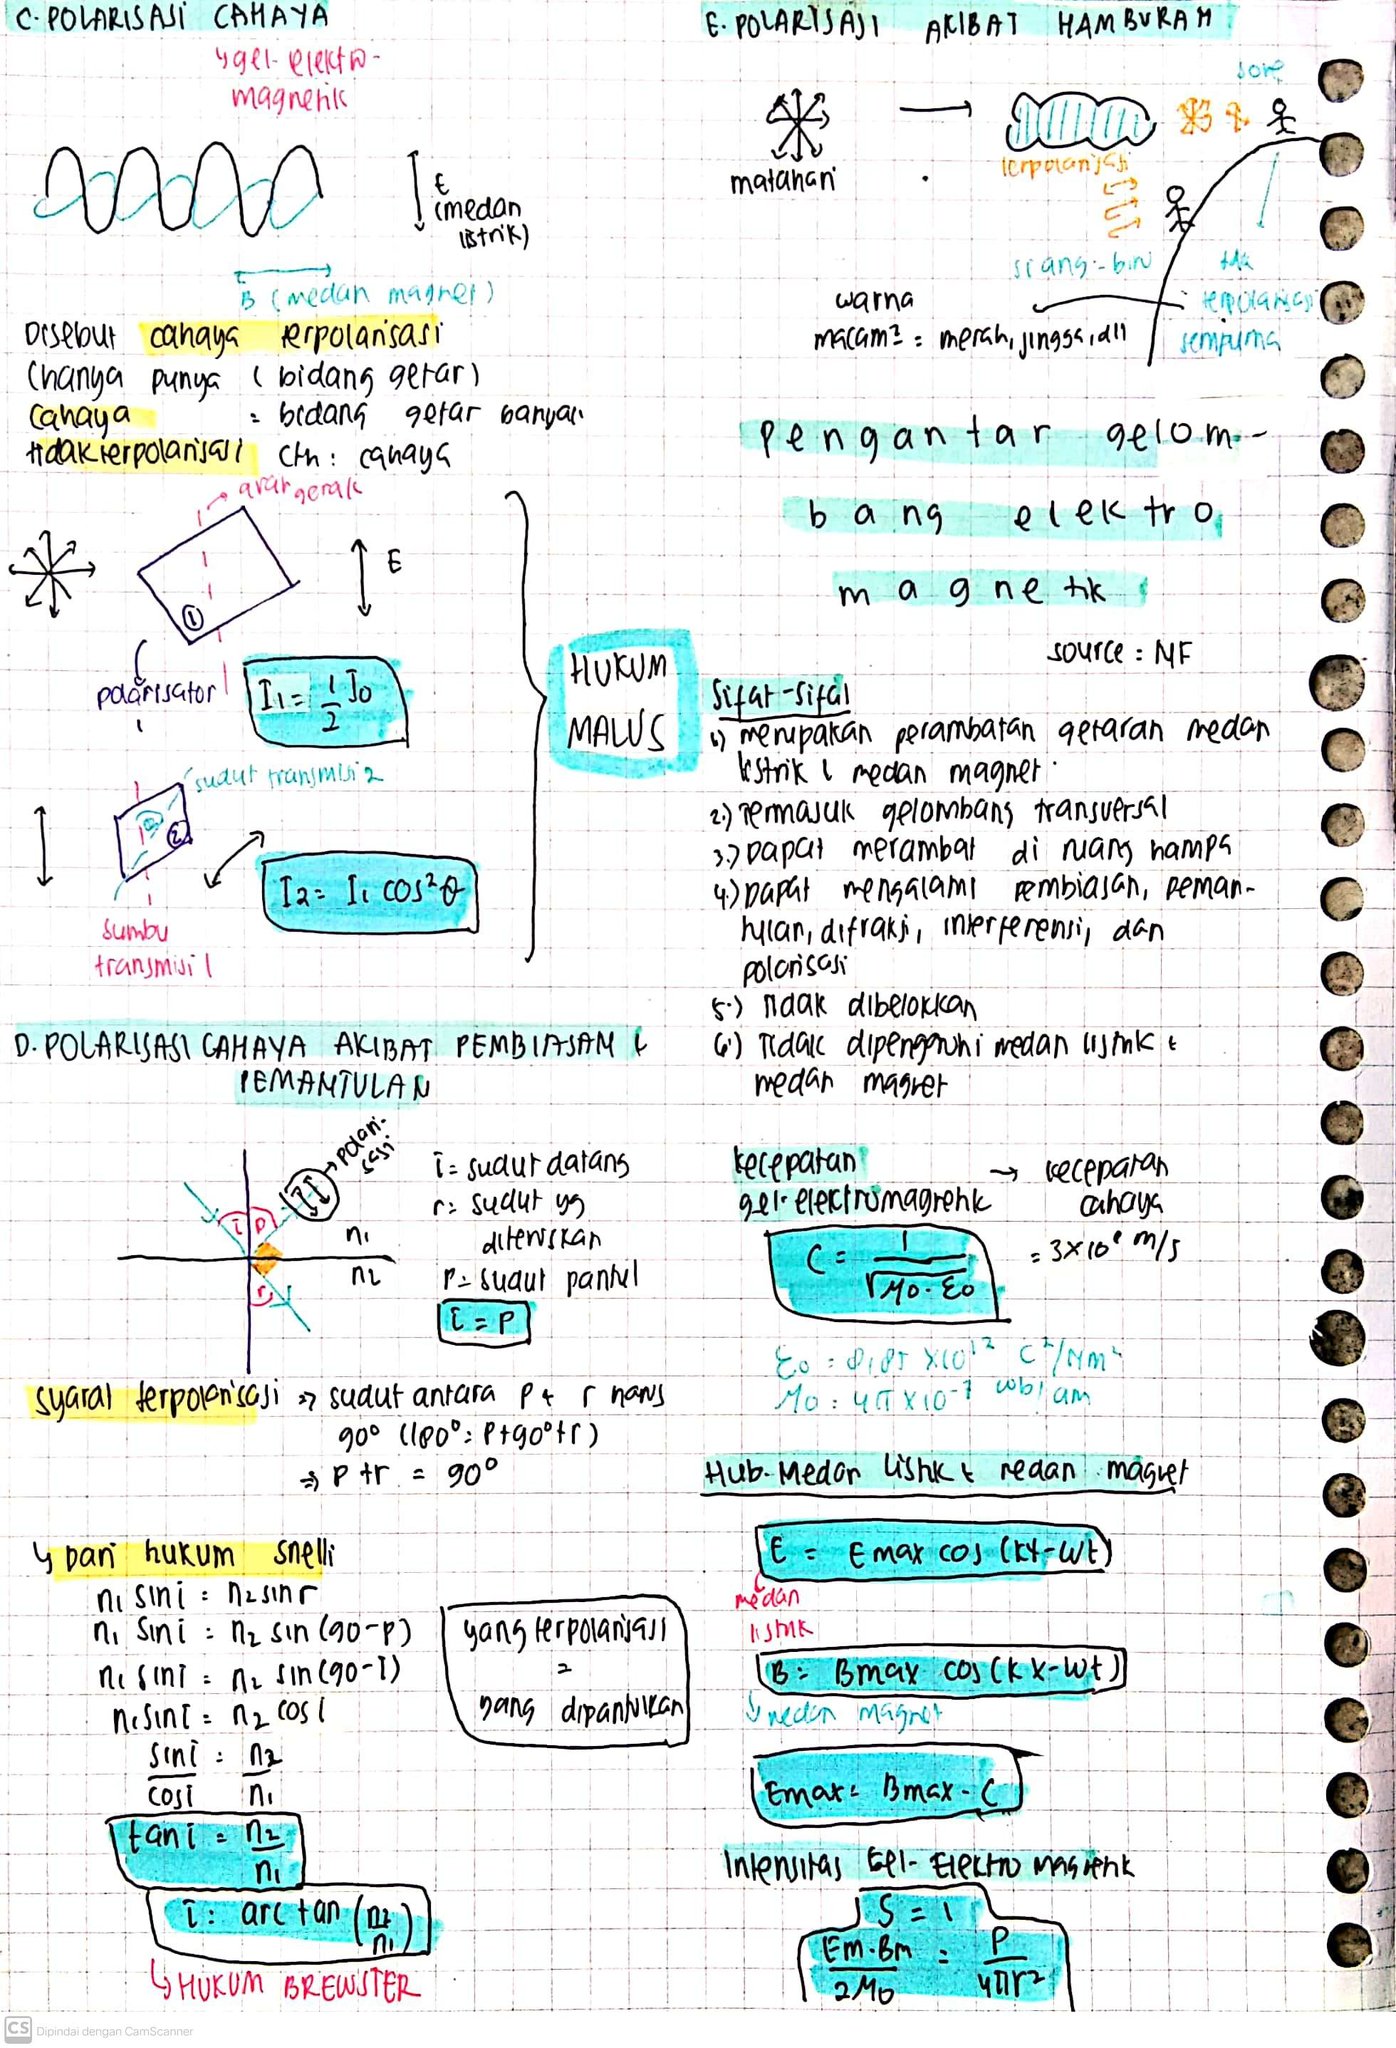 C. POLARISASI CAHAYA
↳ gel. elektro-
magnetik
E
(medan
listrik)
B (medan magnet)
Disebut cahaya terpolarisasi
(hanya punya 1 bidang getar)
cahaya = bidang getar banyak
tidak terpolarisasi cth: cahaya
arah gerak
①
E
polarisator
I₁ = 1/2 I₀
sudut transmisi 2
②
I₂ = I₁ cos²θ
sumbu
transmisi 1
HUKUM
MALUS
D. POLARISASI CAHAYA AKIBAT PEMBIASAN &
PEMANTULAN
polari-
sasi
i p
n₁
n₂
r
i = sudut datang
r = sudut yg
diteruskan
p = sudut pantul
i = p
syarat terpolarisasi => sudut antara p & r harus
90° (180° = p+90°+r)
=> p + r = 90°
↳ Dari hukum snelli
n₁ sin i = n₂ sin r
n₁ sin i = n₂ sin (90-p)
n₁ sin i = n₂ sin (90-i)
n₁ sin i = n₂ cos i
sin i / cos i = n₂ / n₁
tan i = n₂ / n₁
i = arc tan (n₂/n₁)
↳ HUKUM BREWSTER
yang terpolarisasi
=
yang dipantulkan
E. POLARISASI AKIBAT HAMBURAN
sore
matahari
terpolarisasi
siang - biru
tdk
terpolarisasi
sempurna
warna
macam² = merah, jingga, dll
pengantar gelom-
bang elektro
magnetik
source : NF
Sifat-sifat
1.) merupakan perambatan getaran medan
listrik & medan magnet.
2.) Termasuk gelombang transversal
3.) Dapat merambat di ruang hampa
4.) Dapat mengalami pembiasan, peman-
tulan, difraksi, interferensi, dan
polarisasi
5.) Tidak dibelokkan
6.) Tidak dipengaruhi medan listrik &
medan magnet
kecepatan
gel. elektromagnetik → kecepatan
cahaya
= 3×10⁸ m/s
C = 1 / √μ₀·ε₀
ε₀ = 8,85 ×10¹² C²/Nm²
μ₀ = 4π×10⁻⁷ wb/am
Hub. Medan listrik & medan magnet
E = Emax cos (kx-wt)
medan
listrik
B = Bmax cos (kx-wt)
↳ medan magnet
Emax = Bmax · C
Intensitas Gel. Elektro magnetik
S = I
Em·Bm / 2μ₀ = P / 4πr²
CS Dipindai dengan CamScanner